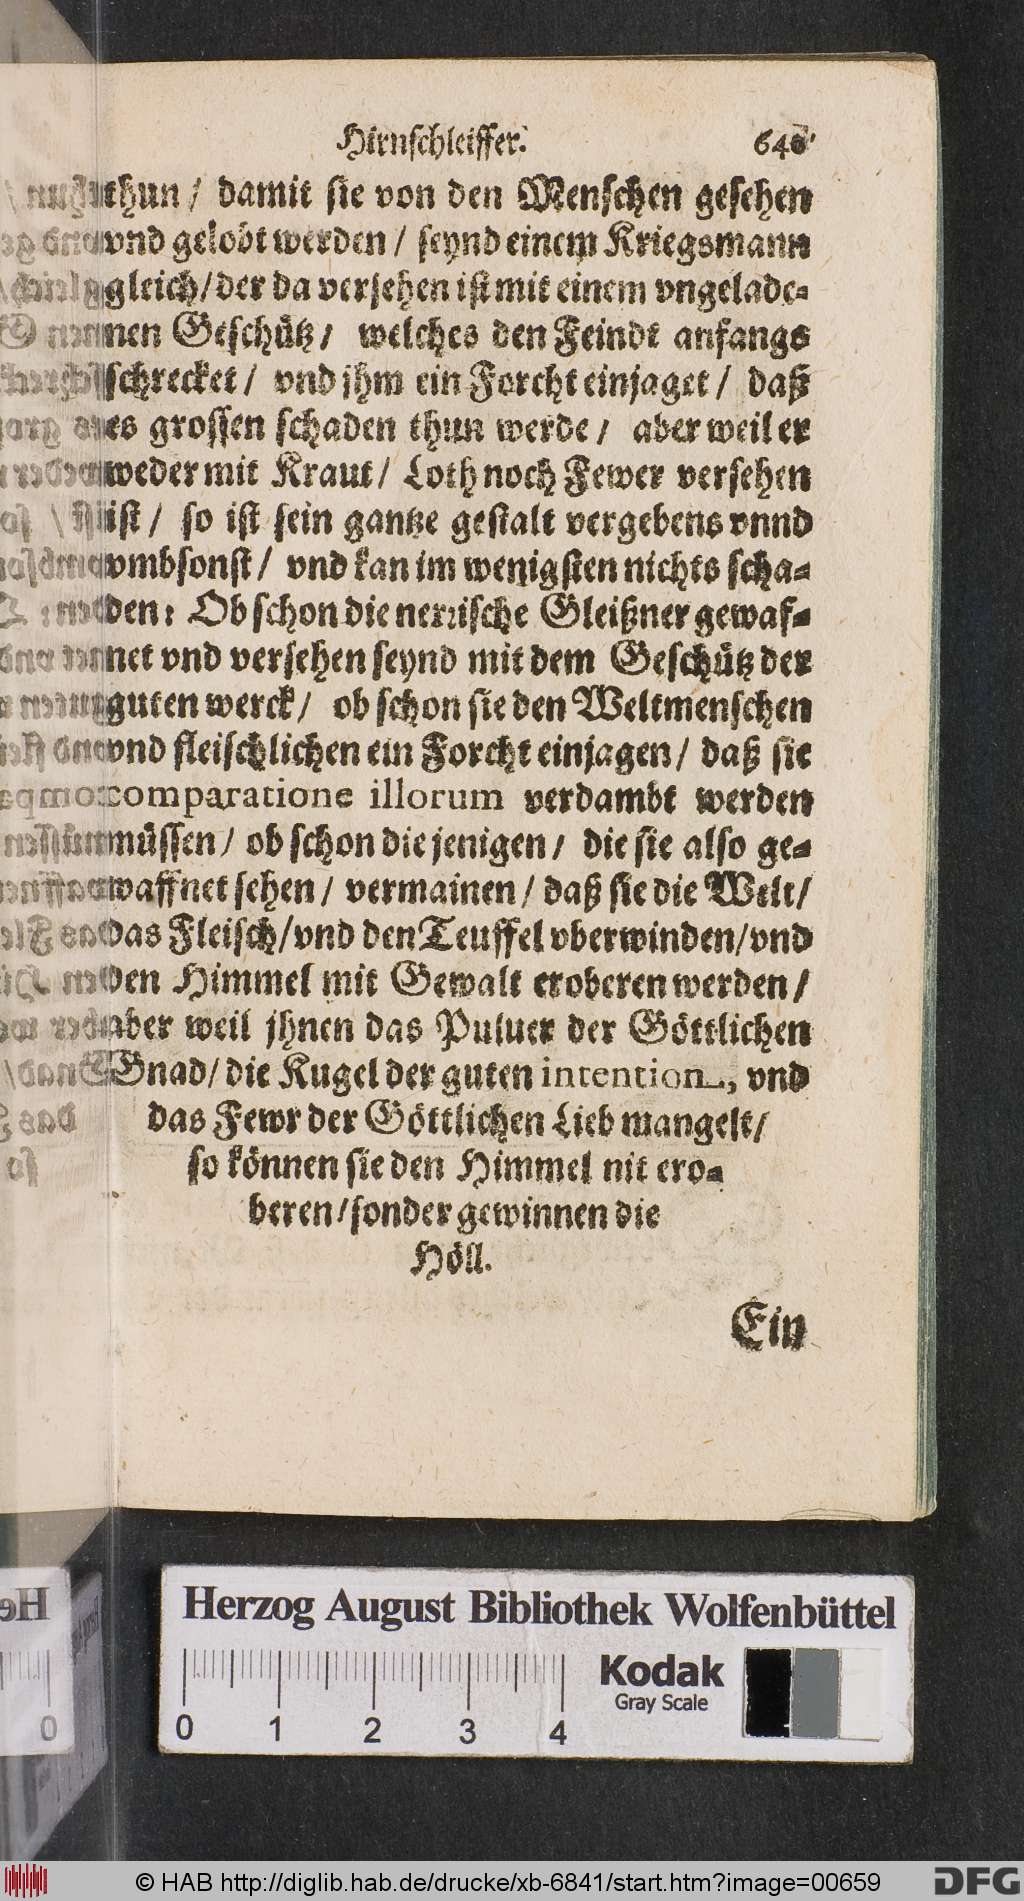 Hirnschleiffer. 640
thun / damit sie von den Menschen gesehen
vnd gelobt werden / seynd einem Kriegsmann
gleich / der da versehen ist mit einem vngelade-
nen Geschütz / welches den Feindt anfangs
schrecket / vnd jhm ein Forcht einjaget / daß
es grossen schaden thun werde / aber weil er
weder mit Kraut / Loth noch Fewer versehen
ist / so ist sein gantze gestalt vergebens vnnd
vmbsonst / vnd kan im wenigsten nichts scha-
den: Ob schon die nerrische Gleißner gewaf-
net vnd versehen seynd mit dem Geschütz der
guten werck / ob schon sie den Weltmenschen
vnd fleischlichen ein Forcht einjagen / daß sie
comparatione illorum verdambt werden
müssen / ob schon die jenigen / die sie also ge-
waffnet sehen / vermainen / daß sie die Welt /
das Fleisch / vnd den Teuffel vberwinden / vnd
den Himmel mit Gewalt eroberen werden /
aber weil jhnen das Puluer der Göttlichen
Gnad / die Kugel der guten intention, vnd
das Fewr der Göttlichen Lieb mangelt /
so können sie den Himmel nit ero-
beren / sonder gewinnen die
Höll.
Ein
Herzog August Bibliothek Wolfenbüttel
Kodak
Gray Scale
0 1 2 3 4
© HAB http://diglib.hab.de/drucke/xb-6841/start.htm?image=00659
DFG